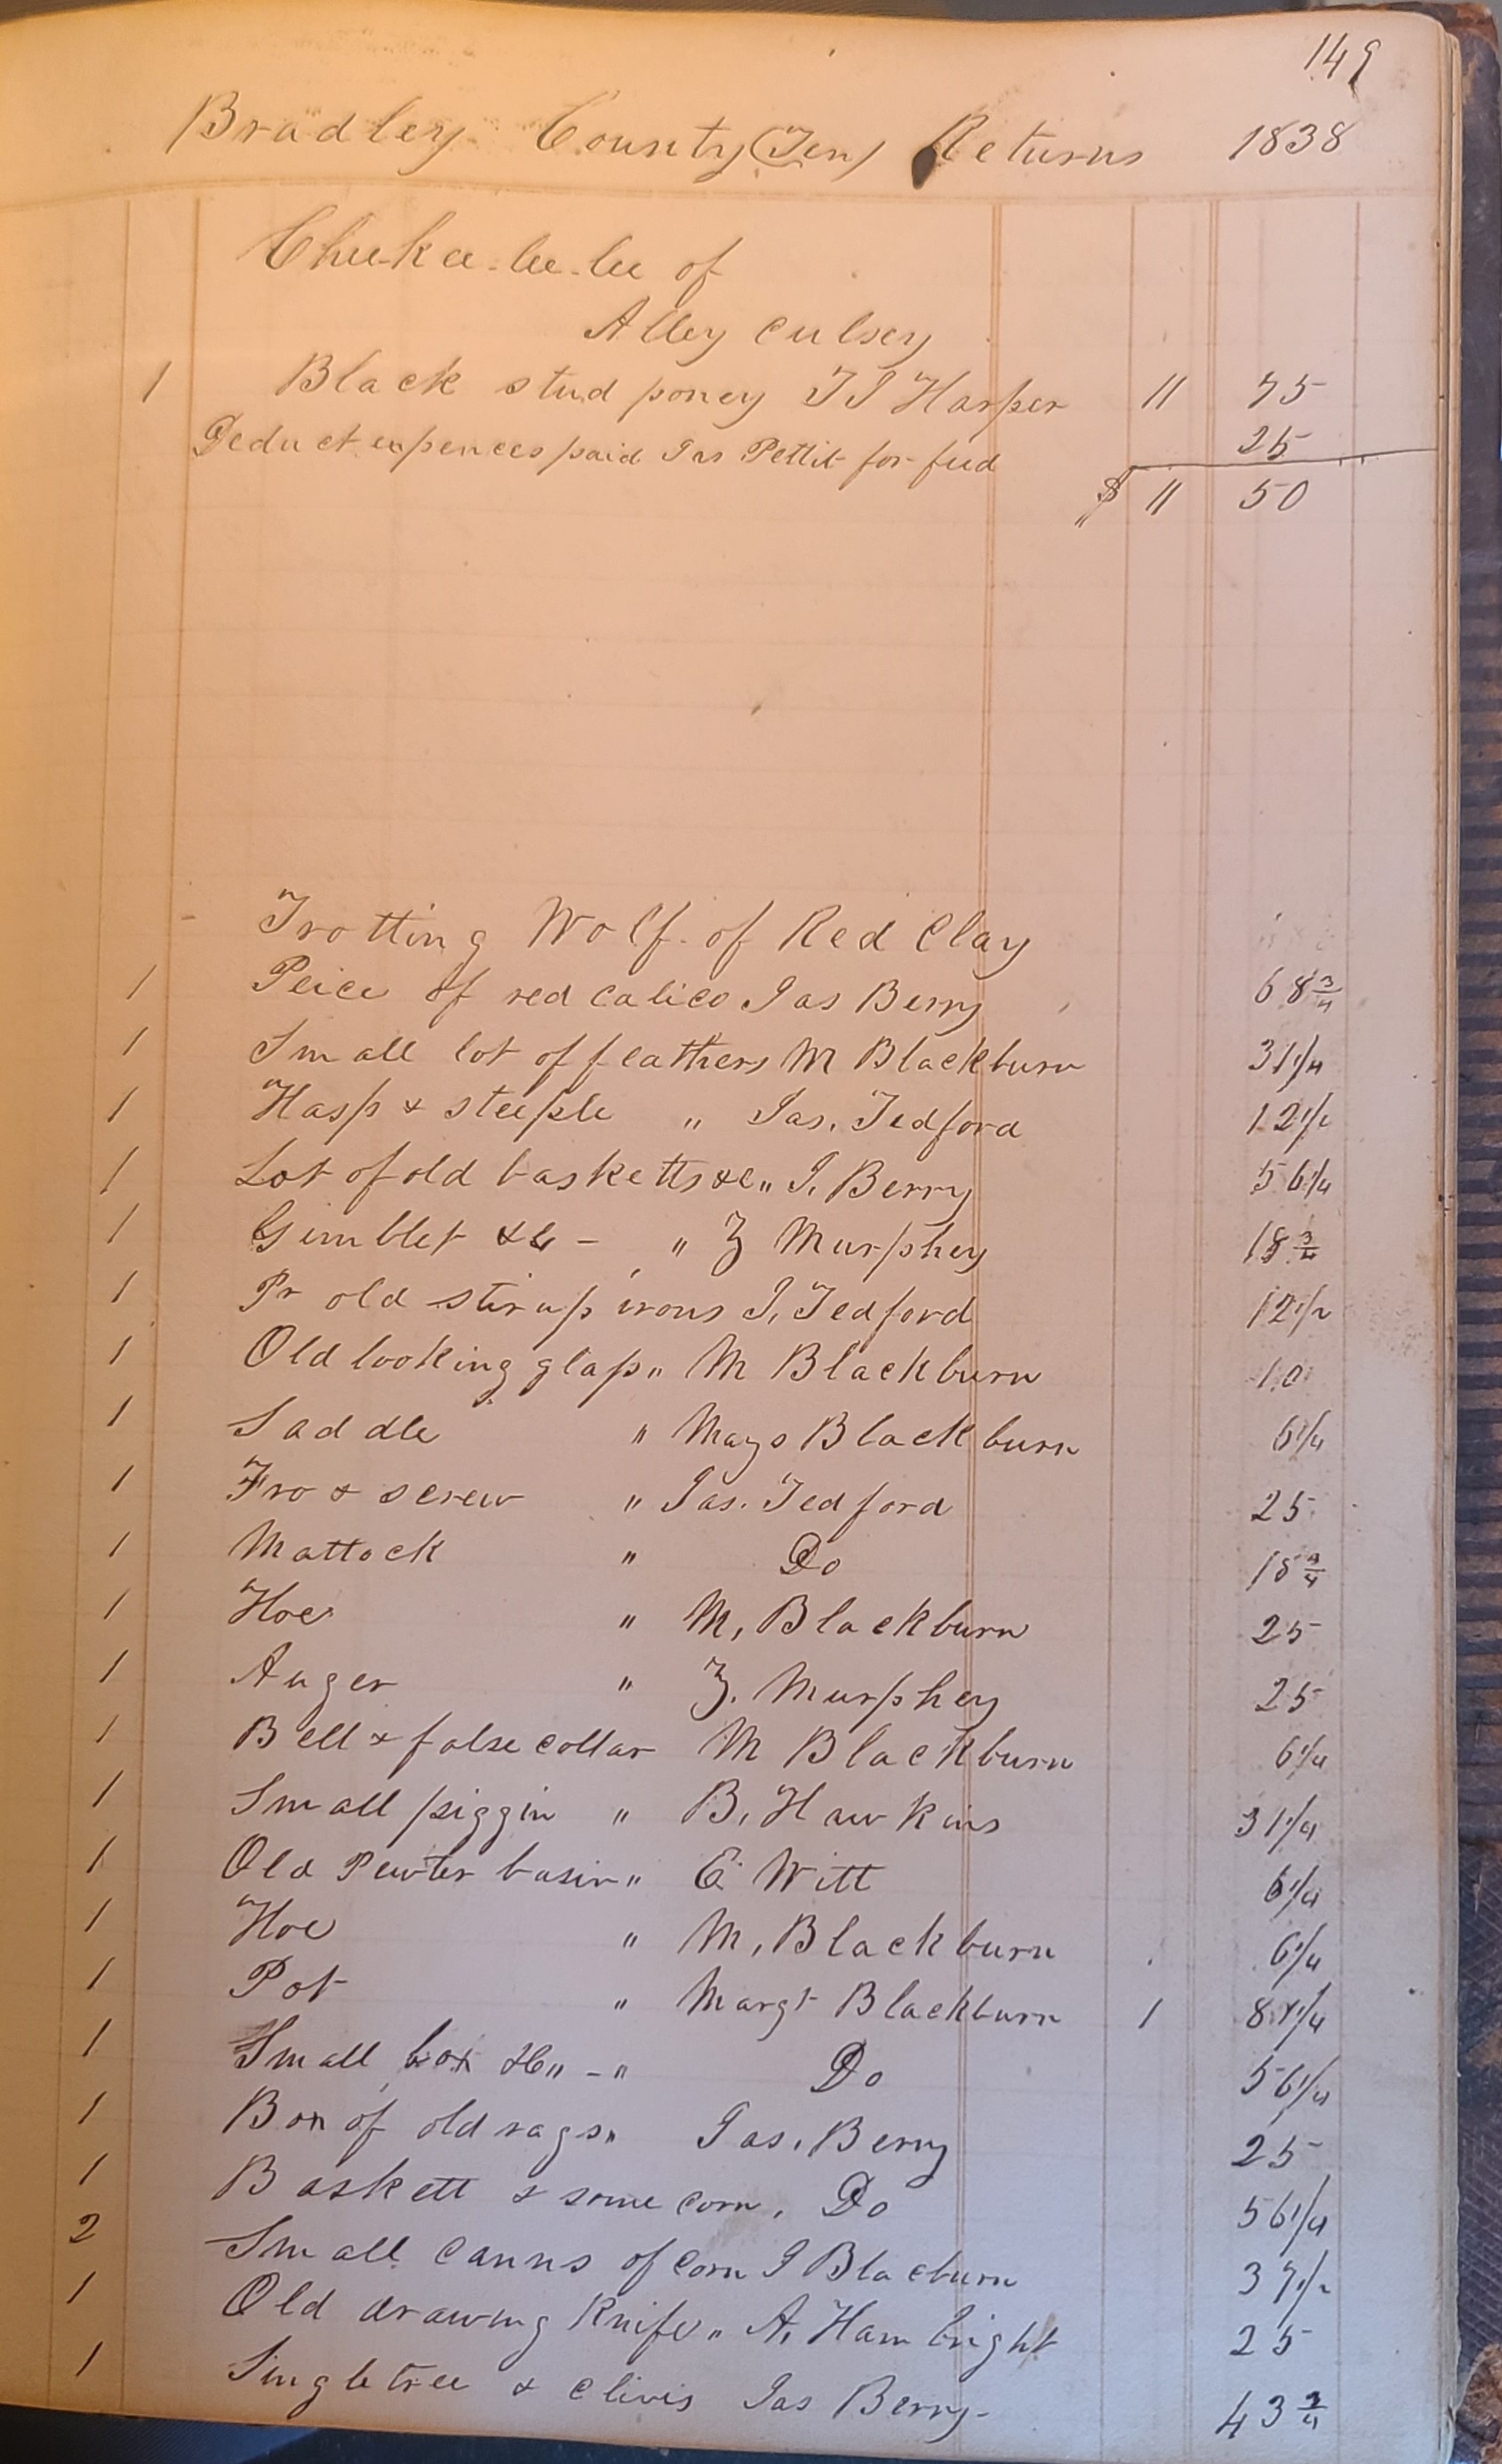 149
Bradley County (Ten) Returns 1838
Chu-ka-lee-lee of
Alley Culsey
1 Black stud poney T J Harper 11 75
Deduct expences paid Jas Pettit for feed 25
$ 11 50
Trotting Wolf of Red Clay
1 Peice of red calico Jas Berry 68 3/4
1 Small lot of feathers M Blackburn 31 1/4
1 Hasp & steeple " Jas. Tedford 12 1/2
1 Lot of old basketts &c " J. Berry 56 1/4
1 Gimblet &c - " Z Murphey 18 3/4
1 Pr old stirup irons J. Tedford 12 1/2
1 Old looking glass " M Blackburn 10
1 Saddle " Mays Blackburn 6 1/4
1 Fro & screw " Jas. Tedford 25
1 Mattock " Do 18 3/4
1 Hoe " M, Blackburn 25
1 Auger " Z. Murphey 25
1 Bell & false collar M Blackburn 6 1/4
1 Small piggin " B. Hawkins 31 1/4
1 Old Pewter basin " E Witt 6 1/4
1 Hoe " M, Blackburn 6 1/4
1 Pot " Margt Blackburn 1 81 1/4
1 Small box &c " - " Do 56 1/4
1 Box of old rags " Jas. Berry 25
1 Baskett & some corn. Do 56 1/4
2 Small canns of corn J Blacburn 37 1/2
1 Old drawing Knife " A. Hambright 25
1 Singletree & clivis Jas Berry - 43 3/4